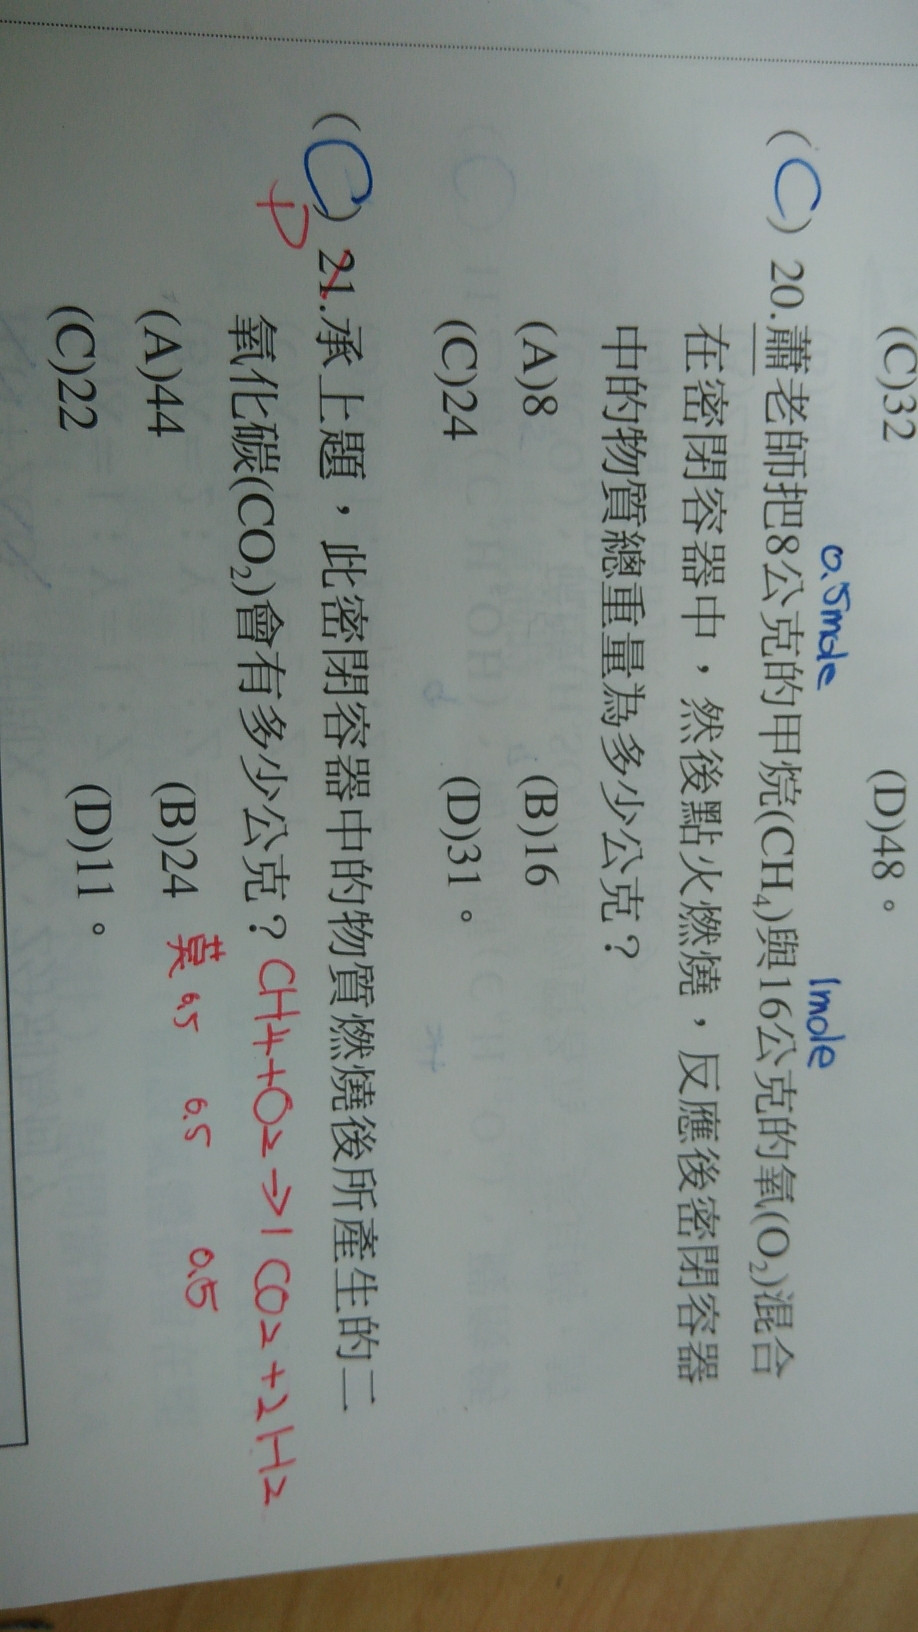 (C)32 (D)48。
0.5mole 1mole
(C) 20.蕭老師把8公克的甲烷(CH₄)與16公克的氧(O₂)混合
在密閉容器中，然後點火燃燒，反應後密閉容器
中的物質總重量為多少公克？
(A)8 (B)16
(C)24 (D)31。
(C) 21.承上題，此密閉容器中的物質燃燒後所產生的二
D
氧化碳(CO₂)會有多少公克？CH4+O2→1CO2+2H2
(A)44 (B)24 莫 0.5 0.5 0.5
(C)22 (D)11。